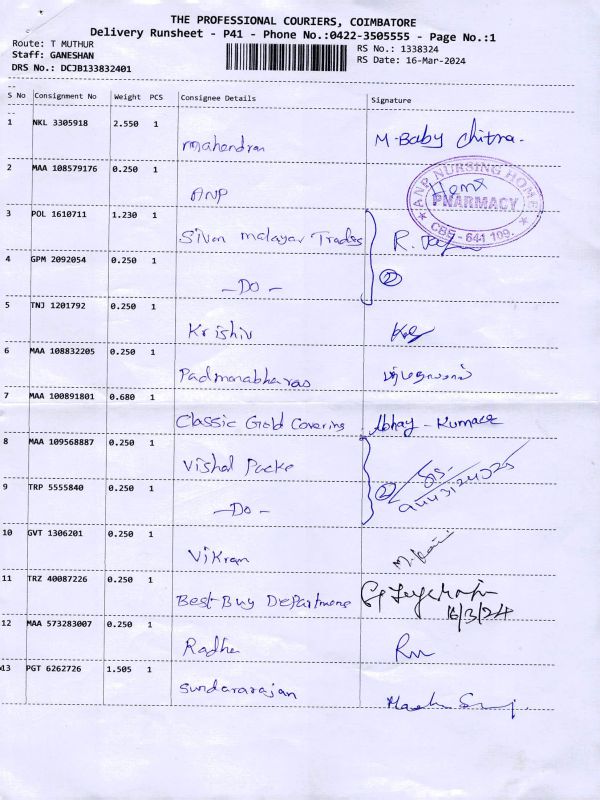 THE PROFESSIONAL COURIERS, COIMBATORE
Delivery Runsheet - P41 - Phone No.:0422-3505555 - Page No.:1
Route: T MUTHUR RS No.: 1338324
Staff: GANESHAN RS Date: 16-Mar-2024
DRS No.: DCJB133832401
S No Consignment No Weight PCS Consignee Details Signature
1 NKL 3305918 2.550 1 mahendran M. Baby Chitra.
2 MAA 108579176 0.250 1 ANP
ANP NURSING HOME
PHARMACY
CBE - 641 109.
3 POL 1610711 1.230 1 Sivan malayar Trades
4 GPM 2092054 0.250 1 -Do- 2
5 TNJ 1201792 0.250 1 Krishiv
6 MAA 108832205 0.250 1 Padmanabharao
7 MAA 100891801 0.680 1 Classic Gold Covering Abhay - Kumar
8 MAA 109568887 0.250 1 Vishal Packe
9 TRP 5555840 0.250 1 -Do- 2
10 GVT 1306201 0.250 1 Vikram
11 TRZ 40087226 0.250 1 Best Buy Department
16/3/24
12 MAA 573283007 0.250 1 Radha
13 PGT 6262726 1.505 1 Sundararajan